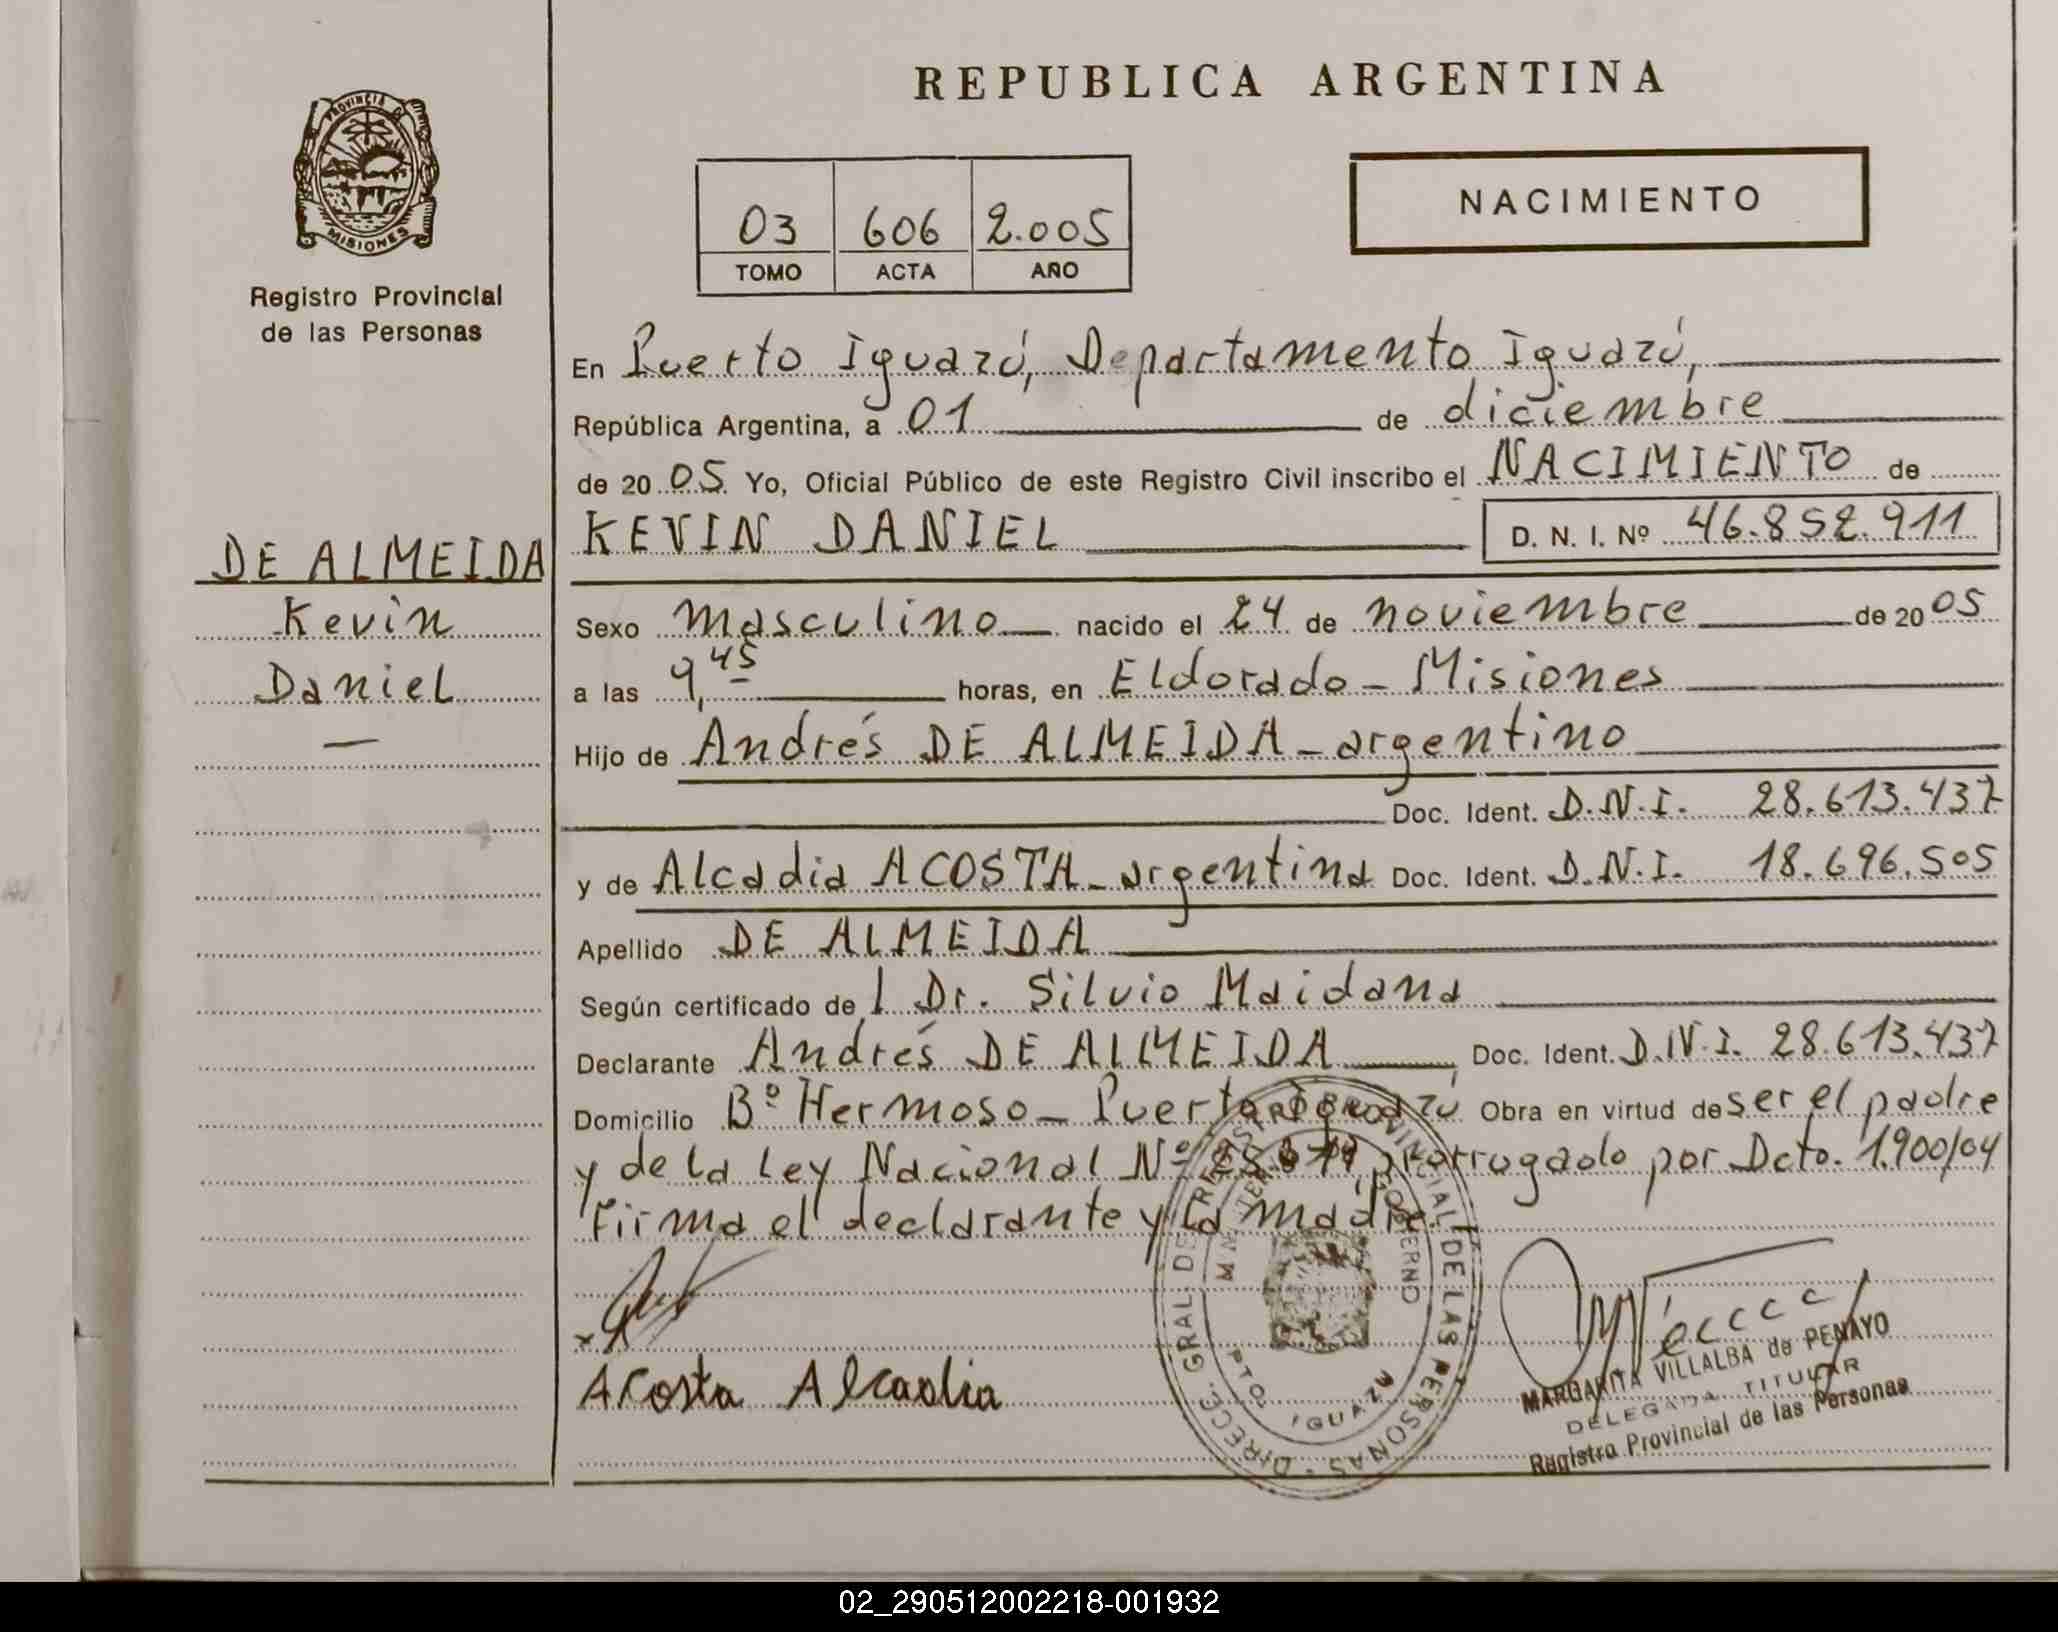 REPUBLICA ARGENTINA
PROVINCIA DE
MISIONES
Registro Provincial
de las Personas
03 606 2.005
TOMO ACTA AÑO
NACIMIENTO
En Puerto Iguazú, Departamento Iguazú,
República Argentina, a 01 de diciembre
de 20 05 Yo, Oficial Público de este Registro Civil inscribo el NACIMIENTO de
KEVIN DANIEL D. N. I. Nº 46.852.911
DE ALMEIDA
Kevin
Daniel
Sexo masculino nacido el 24 de noviembre de 20 05
a las 9,45 horas, en Eldorado - Misiones
Hijo de Andrés DE ALMEIDA - argentino
Doc. Ident. D.N.I. 28.613.437
y de Alcadia ACOSTA - argentina Doc. Ident. D.N.I. 18.696.505
Apellido DE ALMEIDA
Según certificado del Dr. Silvio Maidana
Declarante Andrés DE ALMEIDA Doc. Ident. D.N.I. 28.613.437
Domicilio Bº Hermoso - Puerto Iguazú Obra en virtud de ser el padre
y de la Ley Nacional Nº prorrogado por Dcto. 1.900/04
Firma el declarante y la madre.
Acosta Alcadia
DIRECC. GRAL. DE REGISTRO PROVINCIAL DE LAS PERSONAS
MINISTERIO GOBIERNO
PTO. IGUAZU
MARGARITA VILLALBA de PENAYO
DELEGADA TITULAR
Registro Provincial de las Personas
02_290512002218-001932